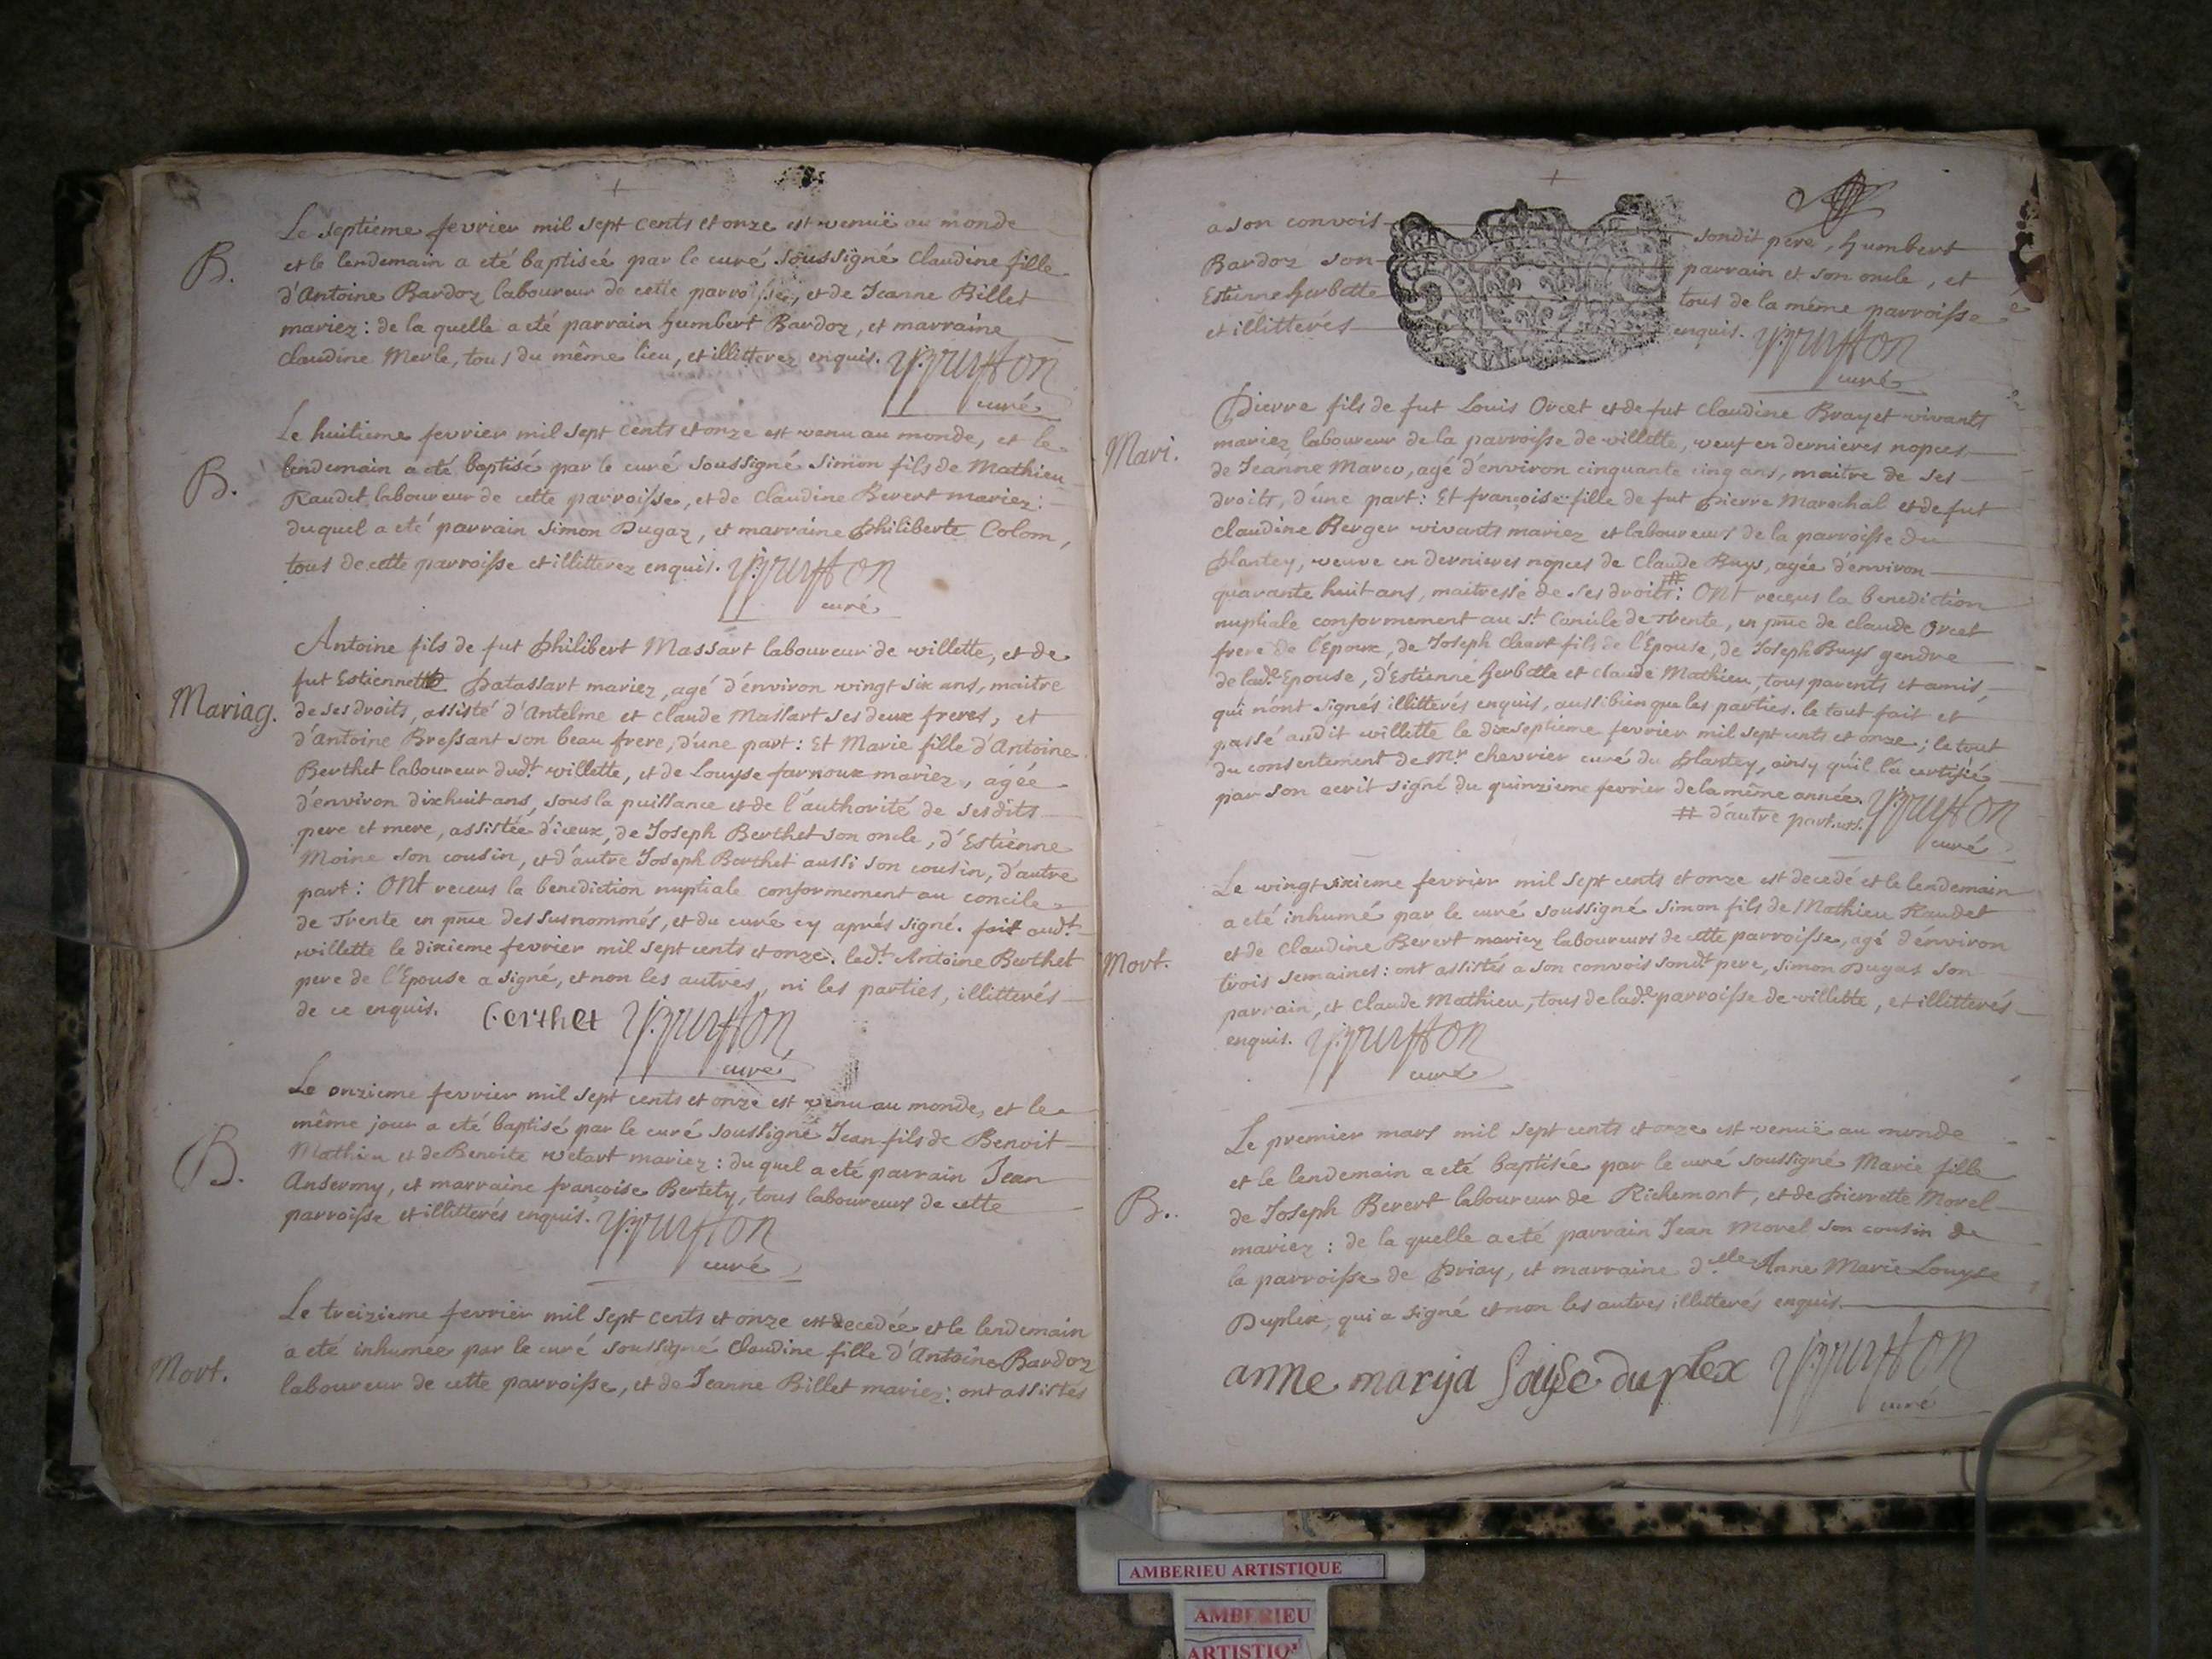 Le septieme fevrier mil sept cents et onze est venuë au monde
B.
et le lendemain a eté baptisée par le curé soussigné Claudine fille
d'Antoine Bardoz laboureur de cette parroisse, et de Jeanne Billet
mariez : de la quelle a eté parrain humbert Bardoz, et marraine
Claudine Merle, tous du même lieu, et illitterez enquis.
curé
Le huitieme fevrier mil sept cents et onze est venu au monde, et le
B.
lendemain a eté baptisé par le curé soussigné Simon fils de Mathieu
Raudet laboureur de cette parroisse, et de Claudine Berert mariez :
duquel a eté parrain Simon Dugaz, et marraine Philiberte Colom,
tous de cette parroisse et illitterez enquis.
curé
Antoine fils de fut Philibert Massart laboureur de villette, et de
fut Estiennette Patassart mariez, agé d'environ vingt six ans, maitre
Mariag.
de ses droits, assisté d'Antelme et Claude Massart ses deux freres, et
d'Antoine Bressant son beau frere, d'une part : Et Marie fille d'Antoine
Berthet laboureur dudt. villette, et de Louyse farnoux mariez, agée
d'environ dixhuit ans, sous la puissance et de l'authorité de sesdits
pere et mere, assistée d'iceux, de Joseph Berthet son oncle, d'Estienne
Moine son cousin, et d'autre Joseph Berthet aussi son cousin, d'autre
part : ONt receus la benediction nuptiale conformement au concile
de Trente en pnce des susnommés, et du curé cy aprés signé. fait audt.
villette le dixieme fevrier mil sept cents et onze. ledt. Antoine Berthet
pere de l'Epouse a signé, et non les autres, ni les parties, illitterés
de ce enquis. berthet
curé
Le onzieme fevrier mil sept cents et onze est venu au monde, et le
même jour a eté baptisé par le curé soussigné Jean fils de Benoit
B.
Mathieu et de Benoite vetart mariez : du quel a eté parrain Jean
Ansermy, et marraine françoise Bertety, tous laboureurs de cette
parroisse et illitterés enquis.
curé
Le treizieme fevrier mil sept cents et onze est decedée et le lendemain
a eté inhumée par le curé soussigné Claudine fille d'Antoine Bardoz
Mort.
laboureur de cette parroisse, et de Jeanne Billet mariez : ont assistés
a son convois sondit pere, humbert
Bardoz son parrain et son oncle, et
Estienne herbette tous de la même parroisse
et illitterés enquis.
curé
Pierre fils de fut Louis Orcet et de fut Claudine Brayet vivants
Mari.
mariez laboureur de la parroisse de villette, veuf en dernieres nopces
de Jeanne Marcu, agé d'environ cinquante cinq ans, maitre de ses
droits, d'une part : Et françoise fille de fut Pierre Marechal et de fut
Claudine Berger vivants mariez et laboureurs de la parroisse du
Plantey, veuve en dernieres nopces de Claude Buys, agée d'environ
quarante huit ans, maitresse de ses droits # : ONt receus la benediction
nuptiale conformement au st. Concile de Trente, en pnce de Claude Orcet
frere de l'Epoux, de Joseph fils de l'Epouse, de Joseph Buys gendre
de lade. Epouse, d'Estienne herbette et Claude Mathieu, tous parents et amis,
qui n'ont signés illitterés enquis, aussi bien que les parties. le tout fait et
passé audit villette le dixseptieme fevrier mil sept cents et onze ; le tout
du consentement de Mr chevrier curé du Plantey, ainsy qu'il l'a certifié
par son ecrit signé du quinzieme fevrier de la même année.
# d'autre part.
curé
Le vingt sixieme fevrier mil sept cents et onze est decedé et le lendemain
a eté inhumé par le curé soussigné Simon fils de Mathieu Raudet
et de Claudine Berert mariez laboureurs de cette parroisse, agé d'environ
Mort.
trois semaines : ont assistés a son convois sondt pere, Simon Dugas son
parrain, et Claude Mathieu, tous de lade. parroisse de villette, et illitterés
enquis.
curé
Le premier mars mil sept cents et onze est venuë au monde
et le lendemain a eté baptisée par le curé soussigné Marie fille
B.
de Joseph Berert laboureur de Richemont, et de Pierrette Morel
mariez : de la quelle a eté parrain Jean Morel son cousin de
la parroisse de Priay, et marraine delle. Anne Marie Louyse
Duplex, qui a signé et non les autres illitterés enquis.
anne marya Loüyse duplex
curé
AMBERIEU ARTISTIQUE
AMBERIEU
ARTISTIQ